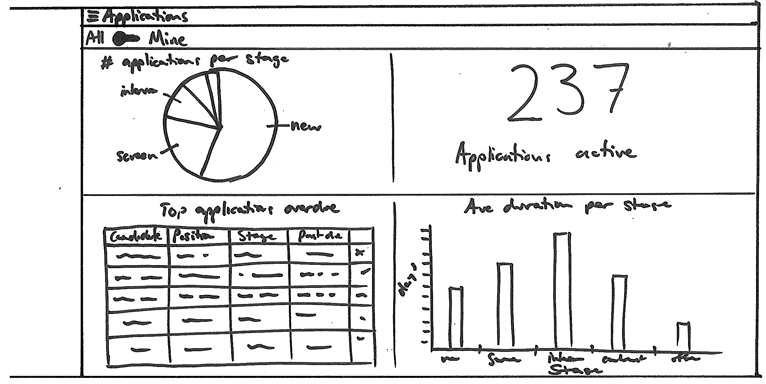 Applications
All Mine
# applications per stage
interv
new
screen
237
Applications active
Top applications overdue
Candidate Position Stage Past due
Ave duration per stage
days
new Screen
Stage